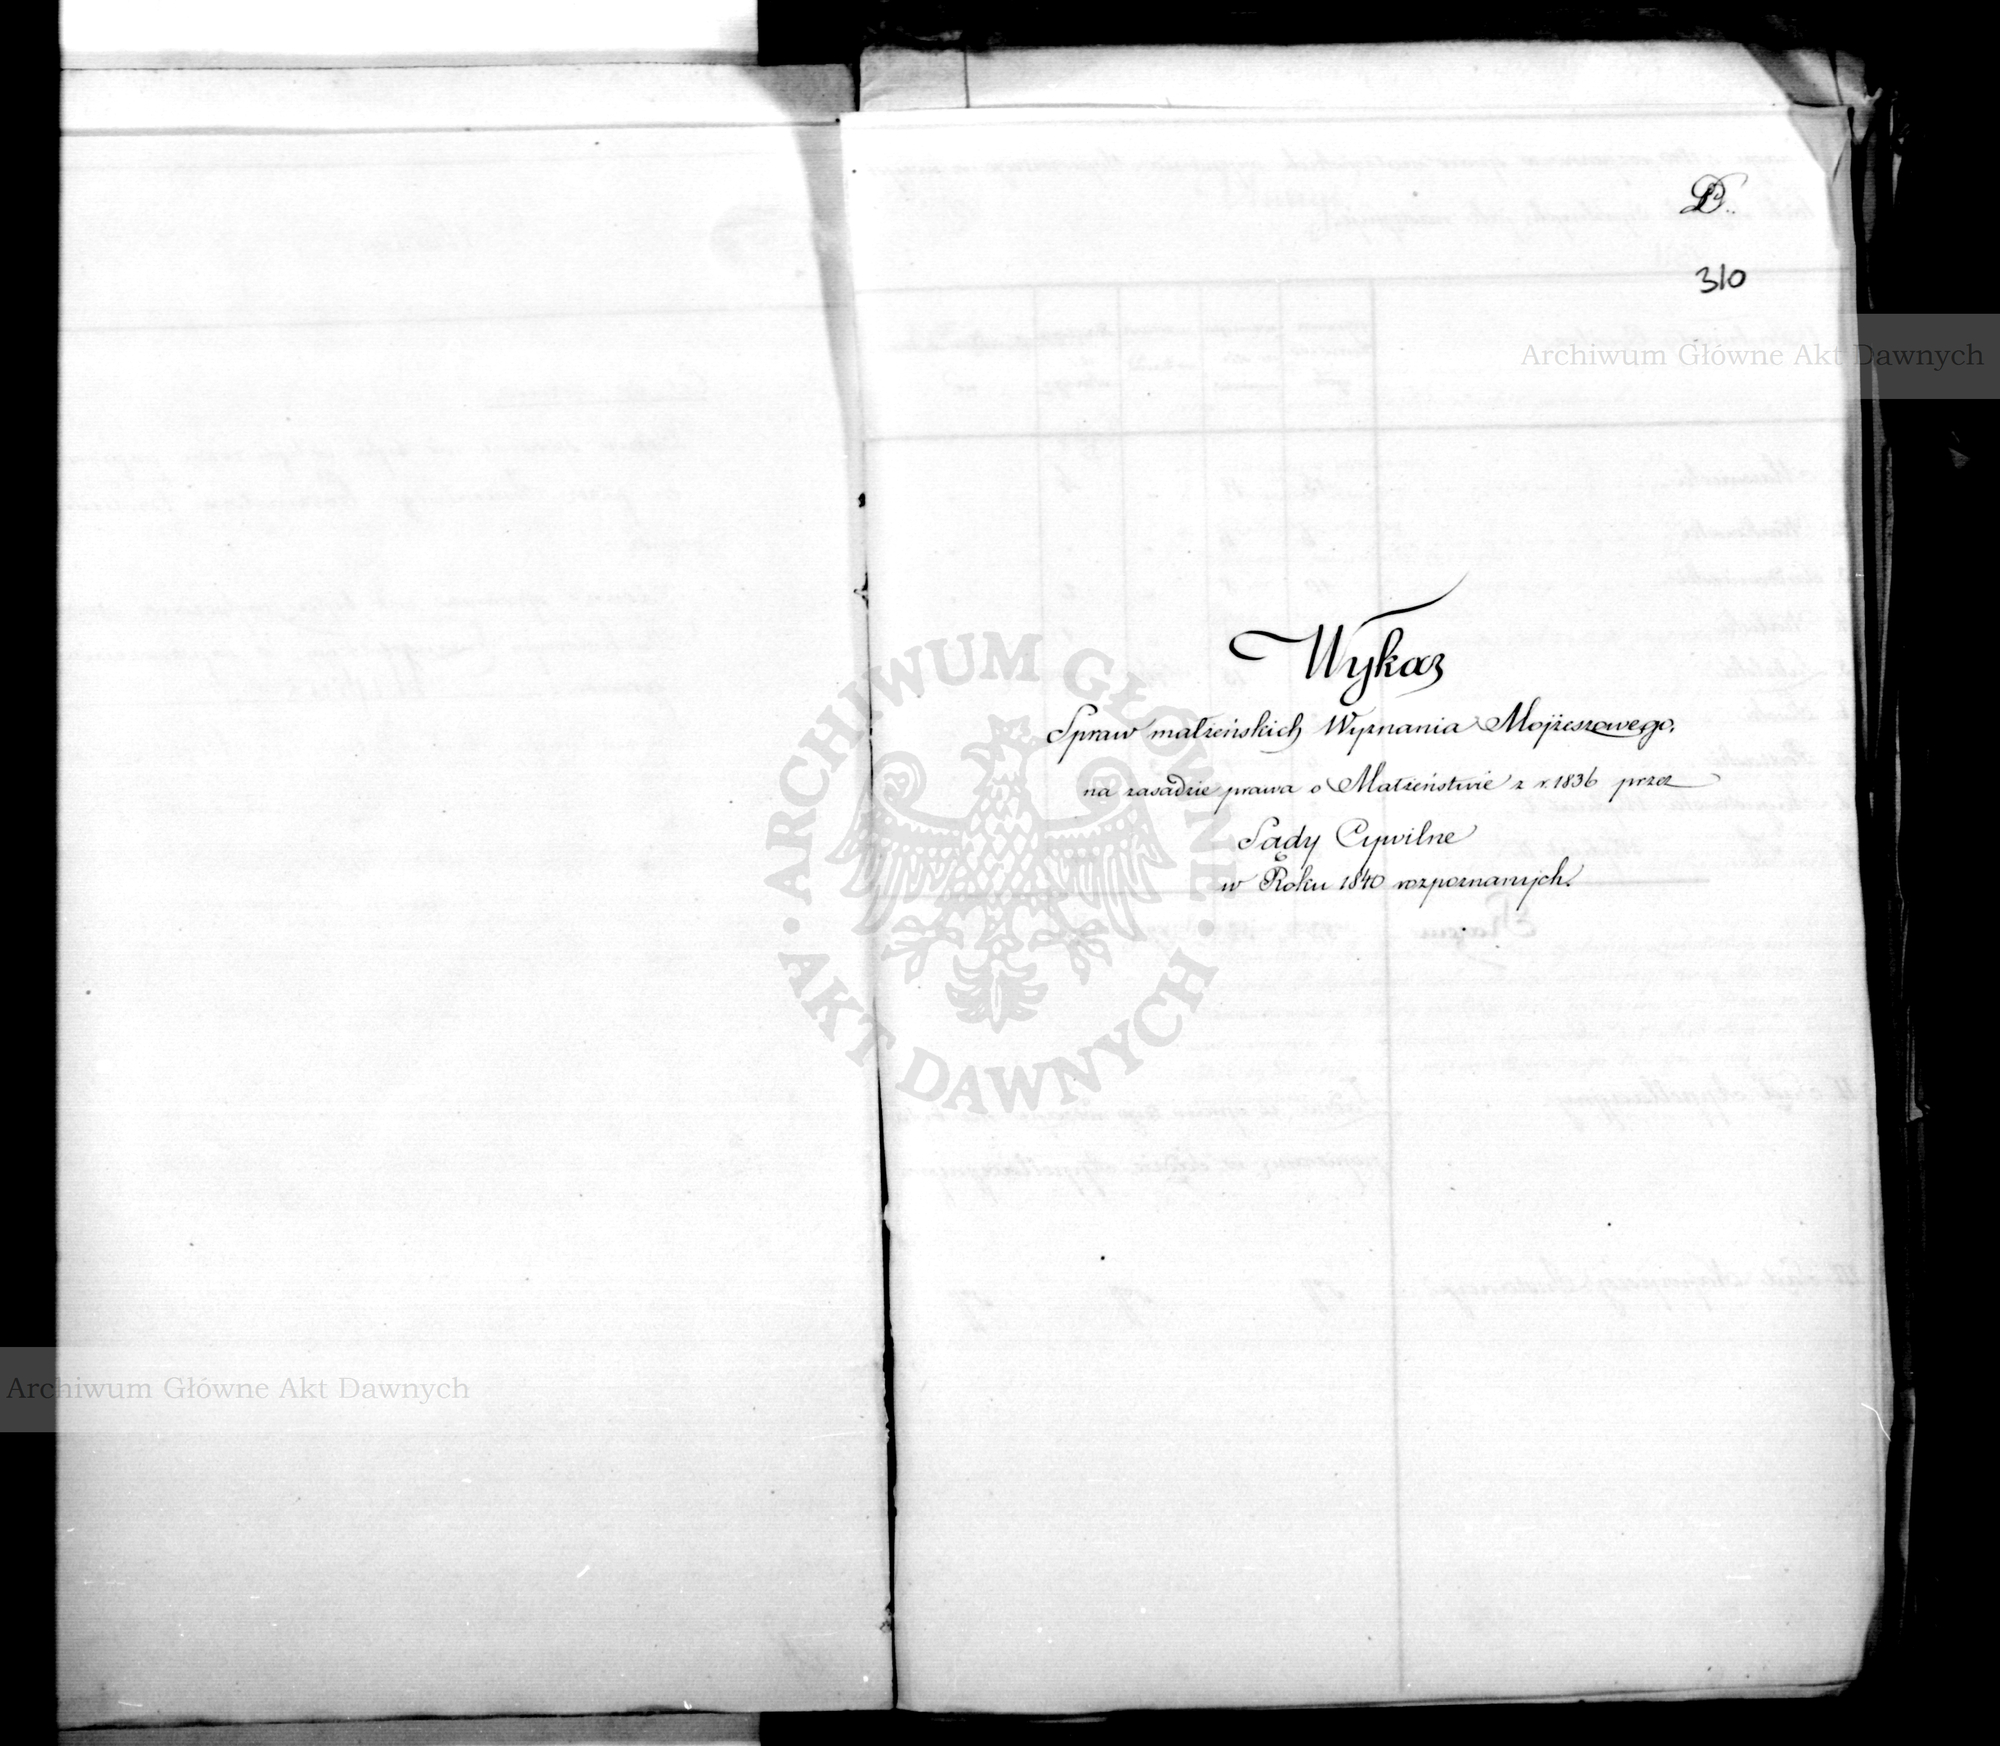 D.
310
Archiwum Główne Akt Dawnych
Wykaz
Spraw małżeńskich Wyznania Mojżeszowego,
na zasadzie prawa o Małżeństwie z r. 1836 przez
Sądy Cywilne
w Roku 1840 rozpoznanych.
ARCHIWUM GŁÓWNE
AKT DAWNYCH
Archiwum Główne Akt Dawnych